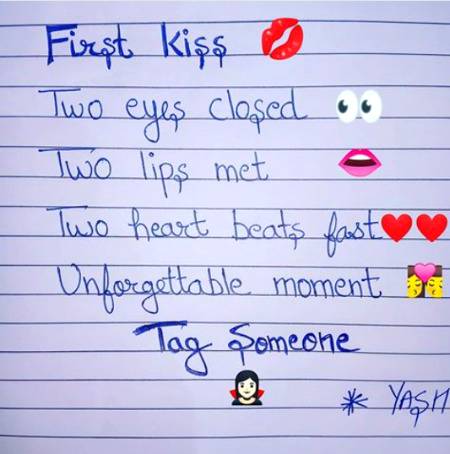 First kiss 💋
Two eyes closed 👀
Two lips met 👄
Two heart beats fast ❤️❤️
Unforgettable moment 💏
Tag Someone
🧛🏻‍♀️
* YASH